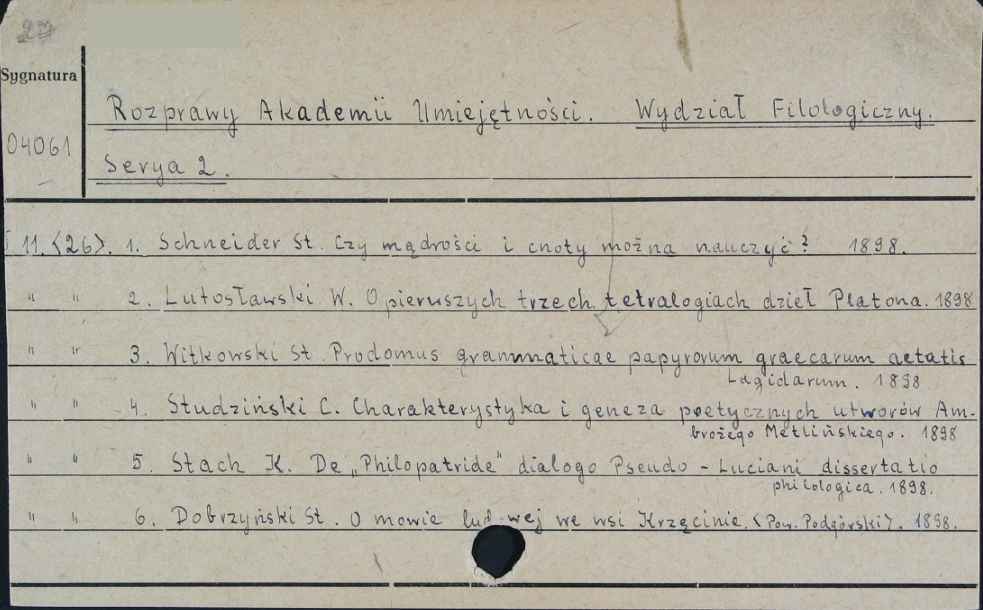 27
Sygnatura
Rozprawy Akademii Umiejętności. Wydział Filologiczny.
04061
Serya 2.
11.<26>. 1. Schneider St. Czy mądrości i cnoty można nauczyć? 1898.
" " 2. Lutosławski W. O pierwszych trzech tetralogiach dzieł Platona. 1898
" " 3. Witkowski St. Prodomus grammaticae papyrorum graecarum aetatis
Lagidarum. 1898
" " 4. Studziński C. Charakterystyka i geneza poetycznych utworów Am-
brożego Metlińskiego. 1898
" " 5. Stach K. De „Philopatride" dialogo Pseudo - Luciani dissertatio
philologica. 1898.
" " 6. Dobrzyński St. O mowie lud wej we wsi Krzęcinie. <Pow. Podgórski>. 1898.